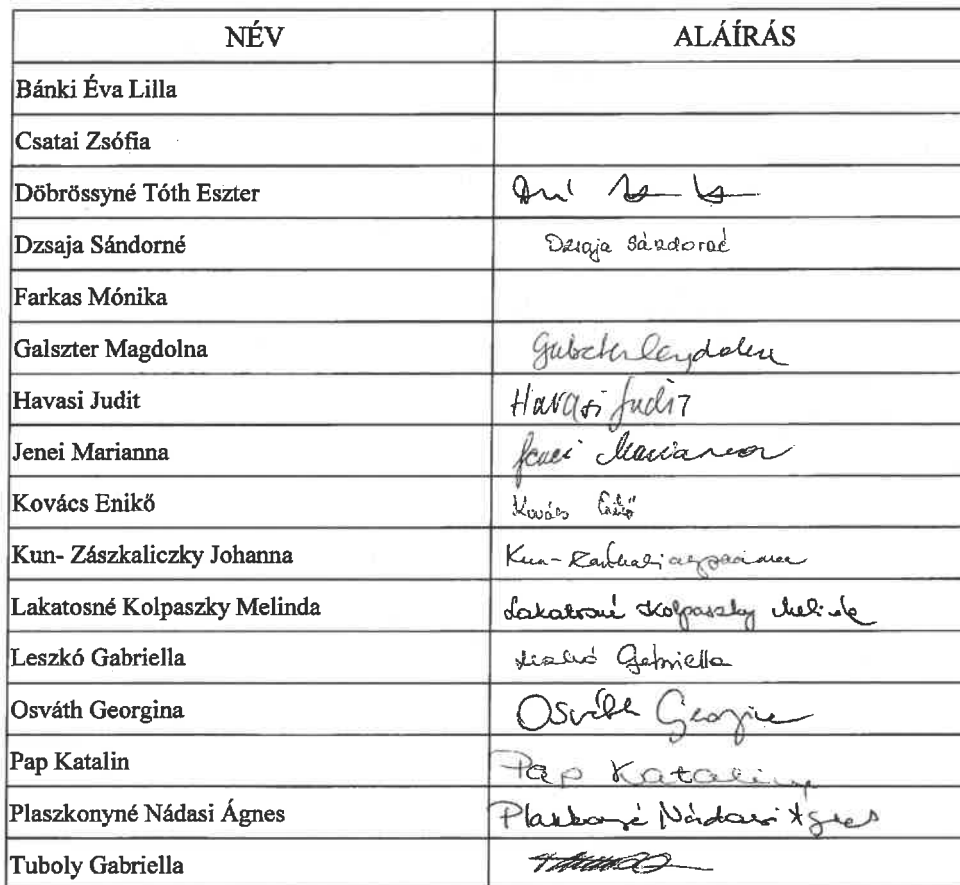 NÉV ALÁÍRÁS
Bánki Éva Lilla
Csatai Zsófia
Döbrössyné Tóth Eszter
Dzsaja Sándorné Dzsaja Sándorné
Farkas Mónika
Galszter Magdolna Galszter Magdolna
Havasi Judit Havasi Judit
Jenei Marianna Jenei Marianna
Kovács Enikő Kovács Enikő
Kun- Zászkaliczky Johanna Kun-
Lakatosné Kolpaszky Melinda Lakatosné Kolpaszky Melinda
Leszkó Gabriella Leszkó Gabriella
Osváth Georgina Osváth Georgina
Pap Katalin Pap Katalin
Plaszkonyné Nádasi Ágnes Plaszkonyné Nádasi Ágnes
Tuboly Gabriella